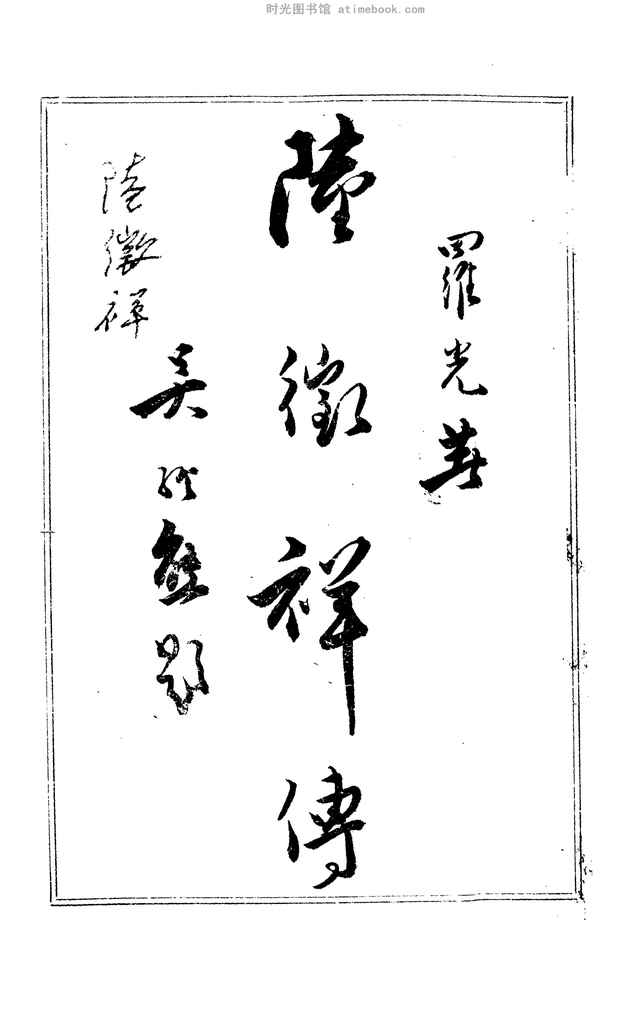 时光图书馆 atimebook.com
羅光著
陸徵祥傳
吴經熊題
陸徵祥